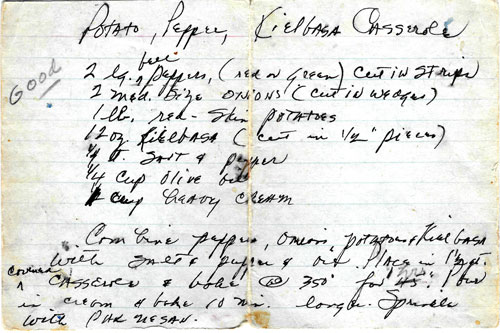 Potato, Pepper, Kielbasa Casserole
Good
2 lg. bell peppers, (red or green) cut in strips
2 med. size onions (cut in wedges)
1 lb. red-skin potatoes
12 oz Kielbasa (cut in 1/2" pieces)
1/4 t. salt & pepper
1/4 cup olive
1 cup heavy cream
Combine peppers, onion, potatoes & Kielbasa
with salt & pepper & oil. Place in 1 1/2 qt
covered casserole & bake @ 350° for 45. Pour
in cream & bake 10 min. longer. Sprinkle
with Parmesan.